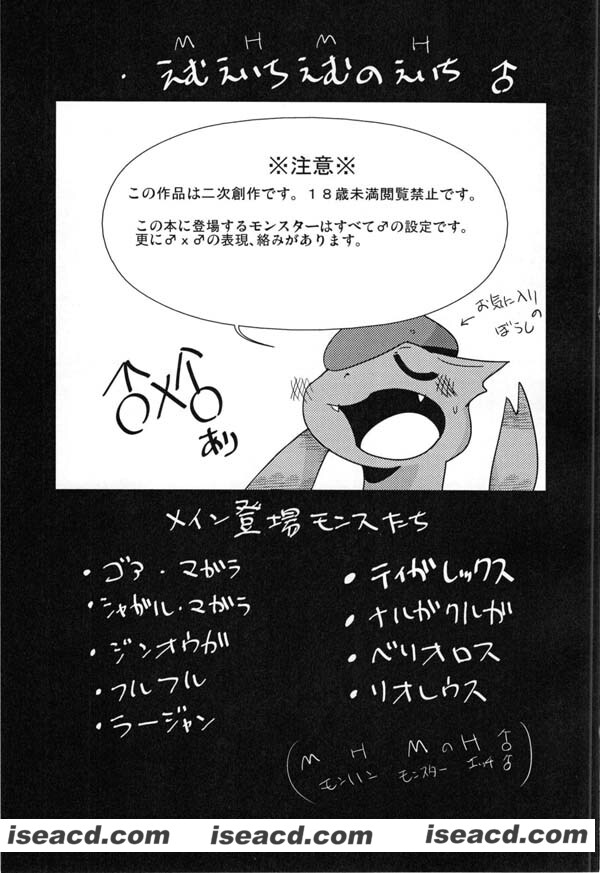 M H M H
・えむえいちえむのえいち ♂
※注意※
この作品は二次創作です。18歳未満閲覧禁止です。
この本に登場するモンスターはすべて♂の設定です。
更に♂x♂の表現、絡みがあります。
←お気に入り
の
ぼうし
♂×♂
あり
メイン登場モンスたち
・ゴア・マガラ
・シャガル・マガラ
・ジンオウガ
・フルフル
・ラージャン
・ティガレックス
・ナルガクルガ
・ベリオロス
・リオレウス
(M H MのH♂)
モンハン モンスター エッチ♂
iseacd.com iseacd.com iseacd.com